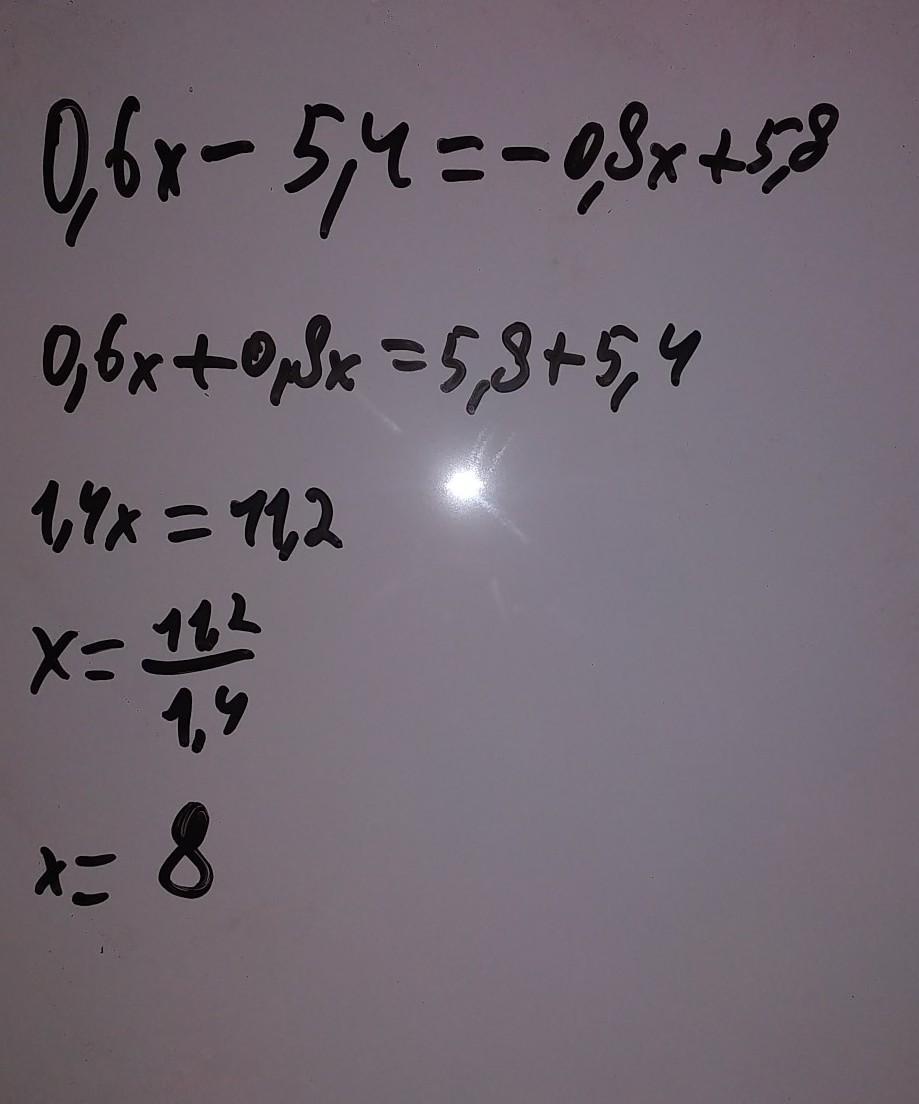 0,6x - 5,4 = - 0,8x + 5,8
0,6x + 0,8x = 5,8 + 5,4
1,4x = 11,2
x = 11,2 / 1,4
x = 8